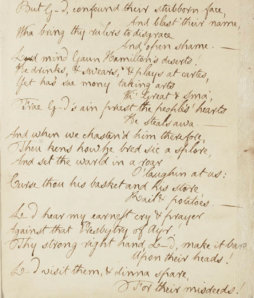 But G-d, confound their stubborn face,
And blast their name,
Wha bring thy rulers to disgrace
And open shame. —
L—d mind Gaun Hamilton's deserts!
He drinks, & swears, & plays at cartes,
Yet has sae mony taking arts
Wi' Great & Sma',
Frae G-d's ain priest the people's hearts
He steals awa. —
And when we chasten'd him therefore,
Thou kens how he bred sic a splore,
And set the warld in a roar
O' laughin at us:
Curse thou his basket and his store,
Kail & potatoes. —
L—d hear my earnest cry & prayer
Against that Presbytry of Ayr!
Thy strong right hand, L—d, make it bare
Upon their heads!
L—d visit them, & dinna spare,
For their misdeeds!